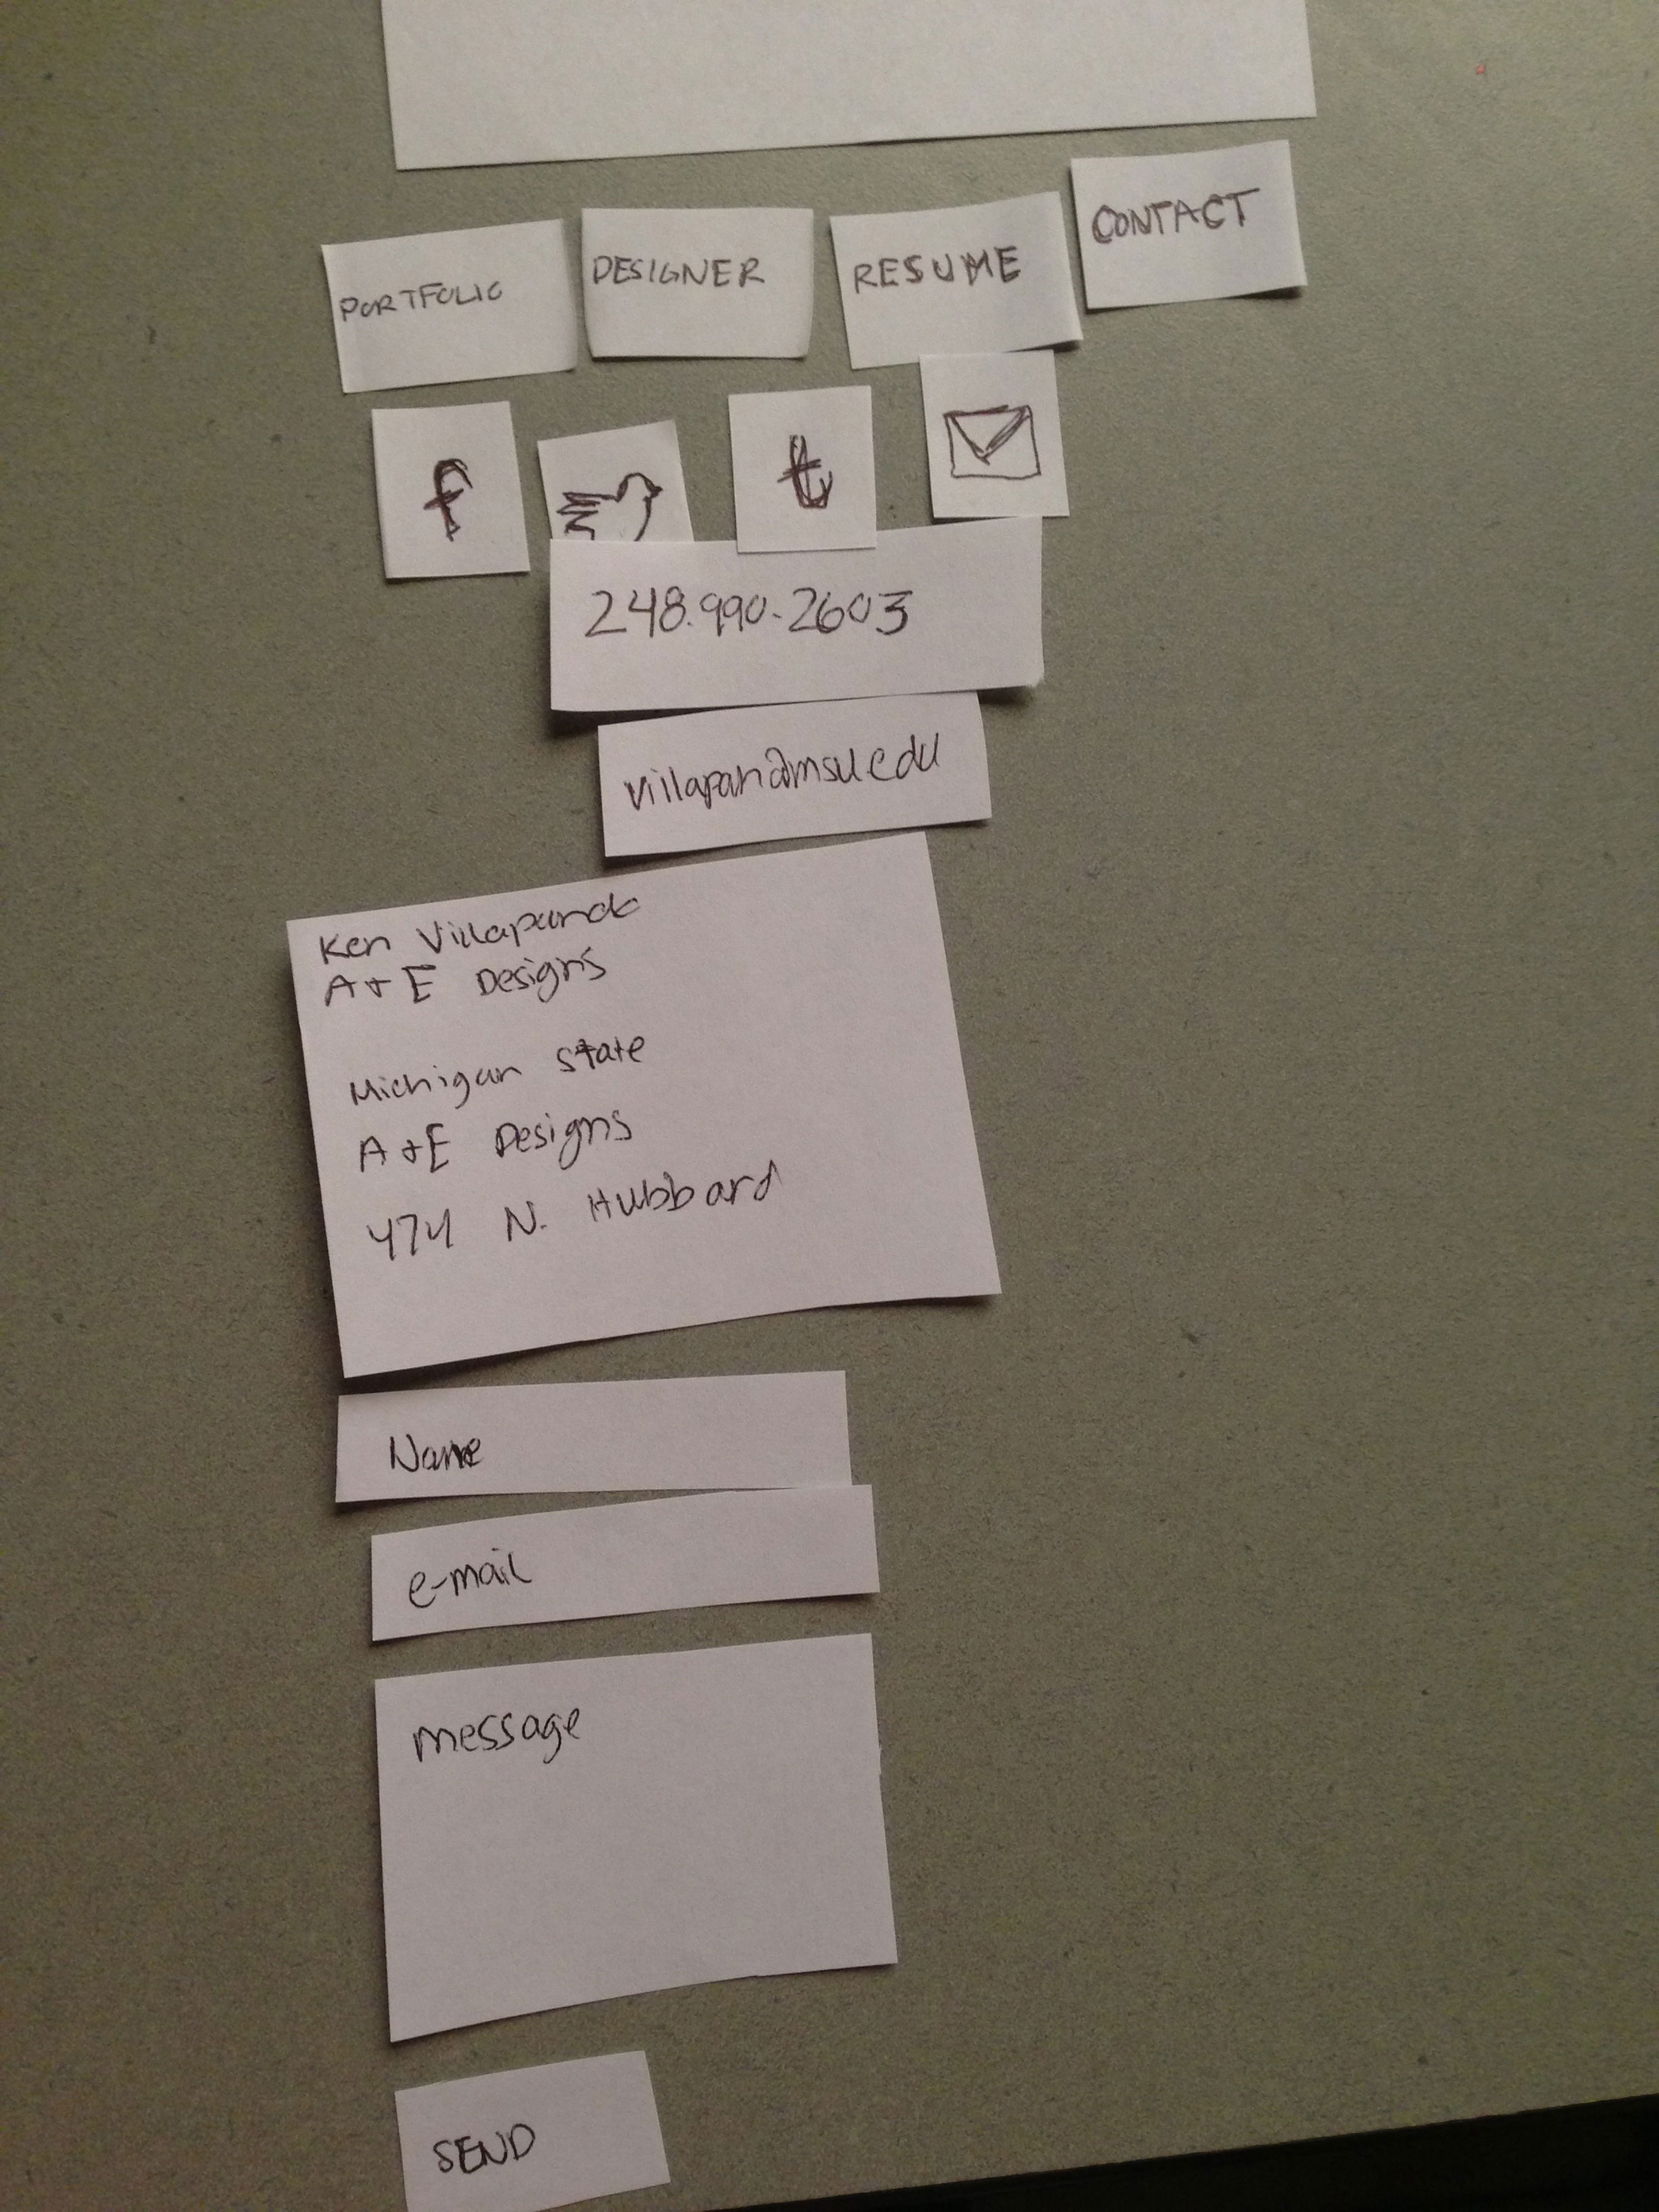 PORTFOLIO
DESIGNER
RESUME
CONTACT
f
t
248.990.2603
villapan@msu.edu
Ken Villapando
A+E Designs
Michigan State
A+E Designs
474 N. Hubbard
Name
e-mail
message
SEND